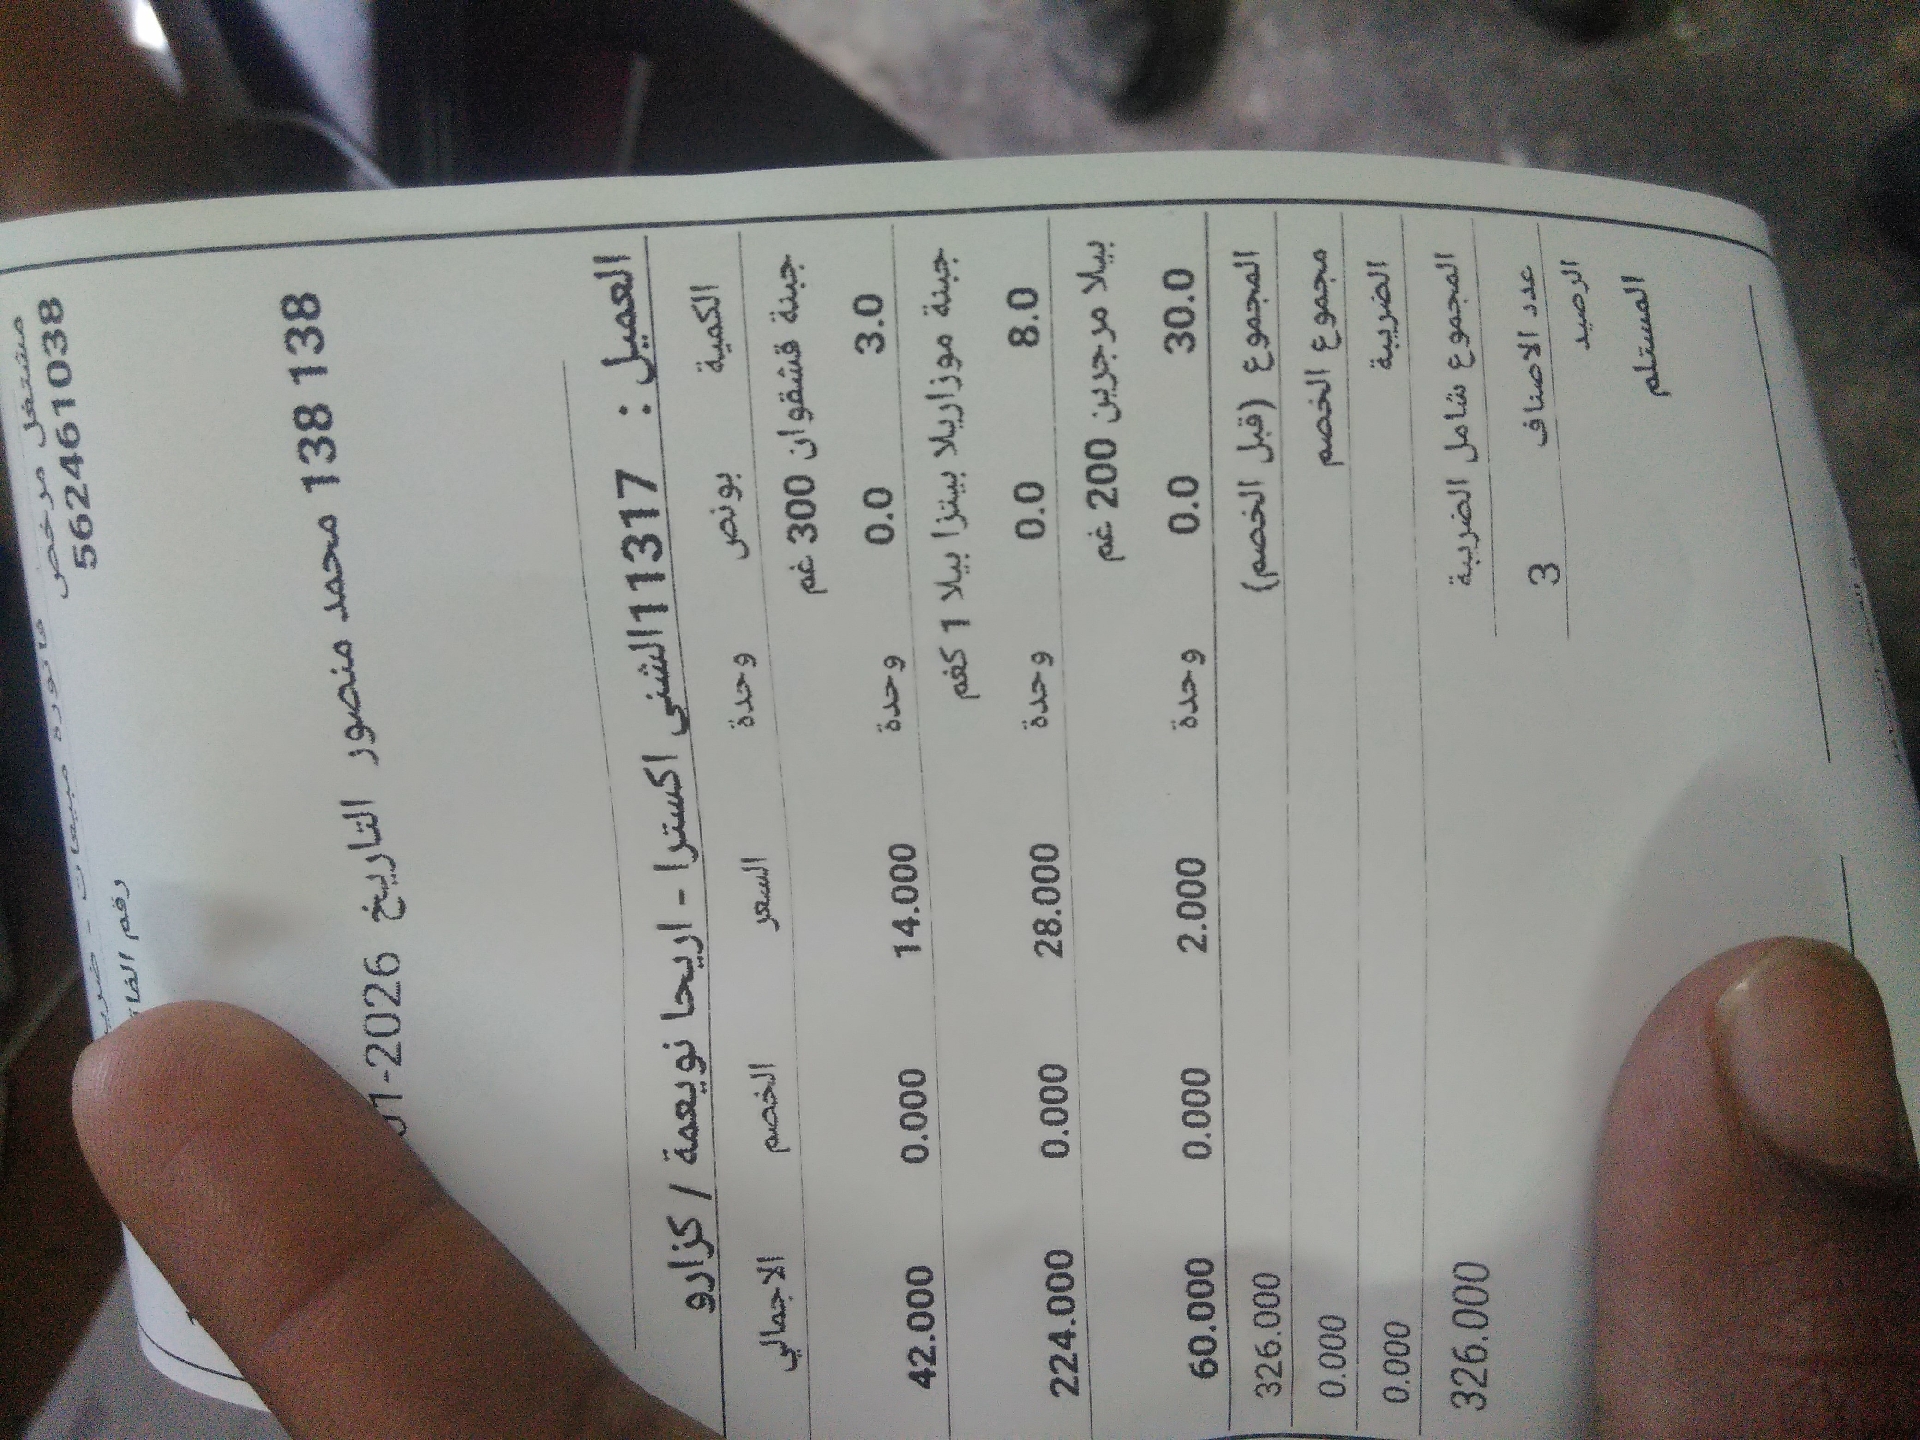 مشتغل مرخص 562461038
فاتورة مبيعات - ضريب
رقم الفا
138 138 محمد منصور التاريخ 01-2026
العميل : 11317الشني اكسترا - اريحا نويعمة / كزارو
الكمية بونص وحدة السعر الخصم الاجمالي
جبنة قشقوان 300 غم
3.0 0.0 وحدة 14.000 0.000 42.000
جبنة موزاريلا بيتزا بيلا 1 كغم
8.0 0.0 وحدة 28.000 0.000 224.000
بيلا مرجرين 200 غم
30.0 0.0 وحدة 2.000 0.000 60.000
المجموع (قبل الخصم) 326.000
مجموع الخصم 0.000
الضريبة 0.000
المجموع شامل الضريبة 326.000
عدد الاصناف 3
الرصيد
المستلم